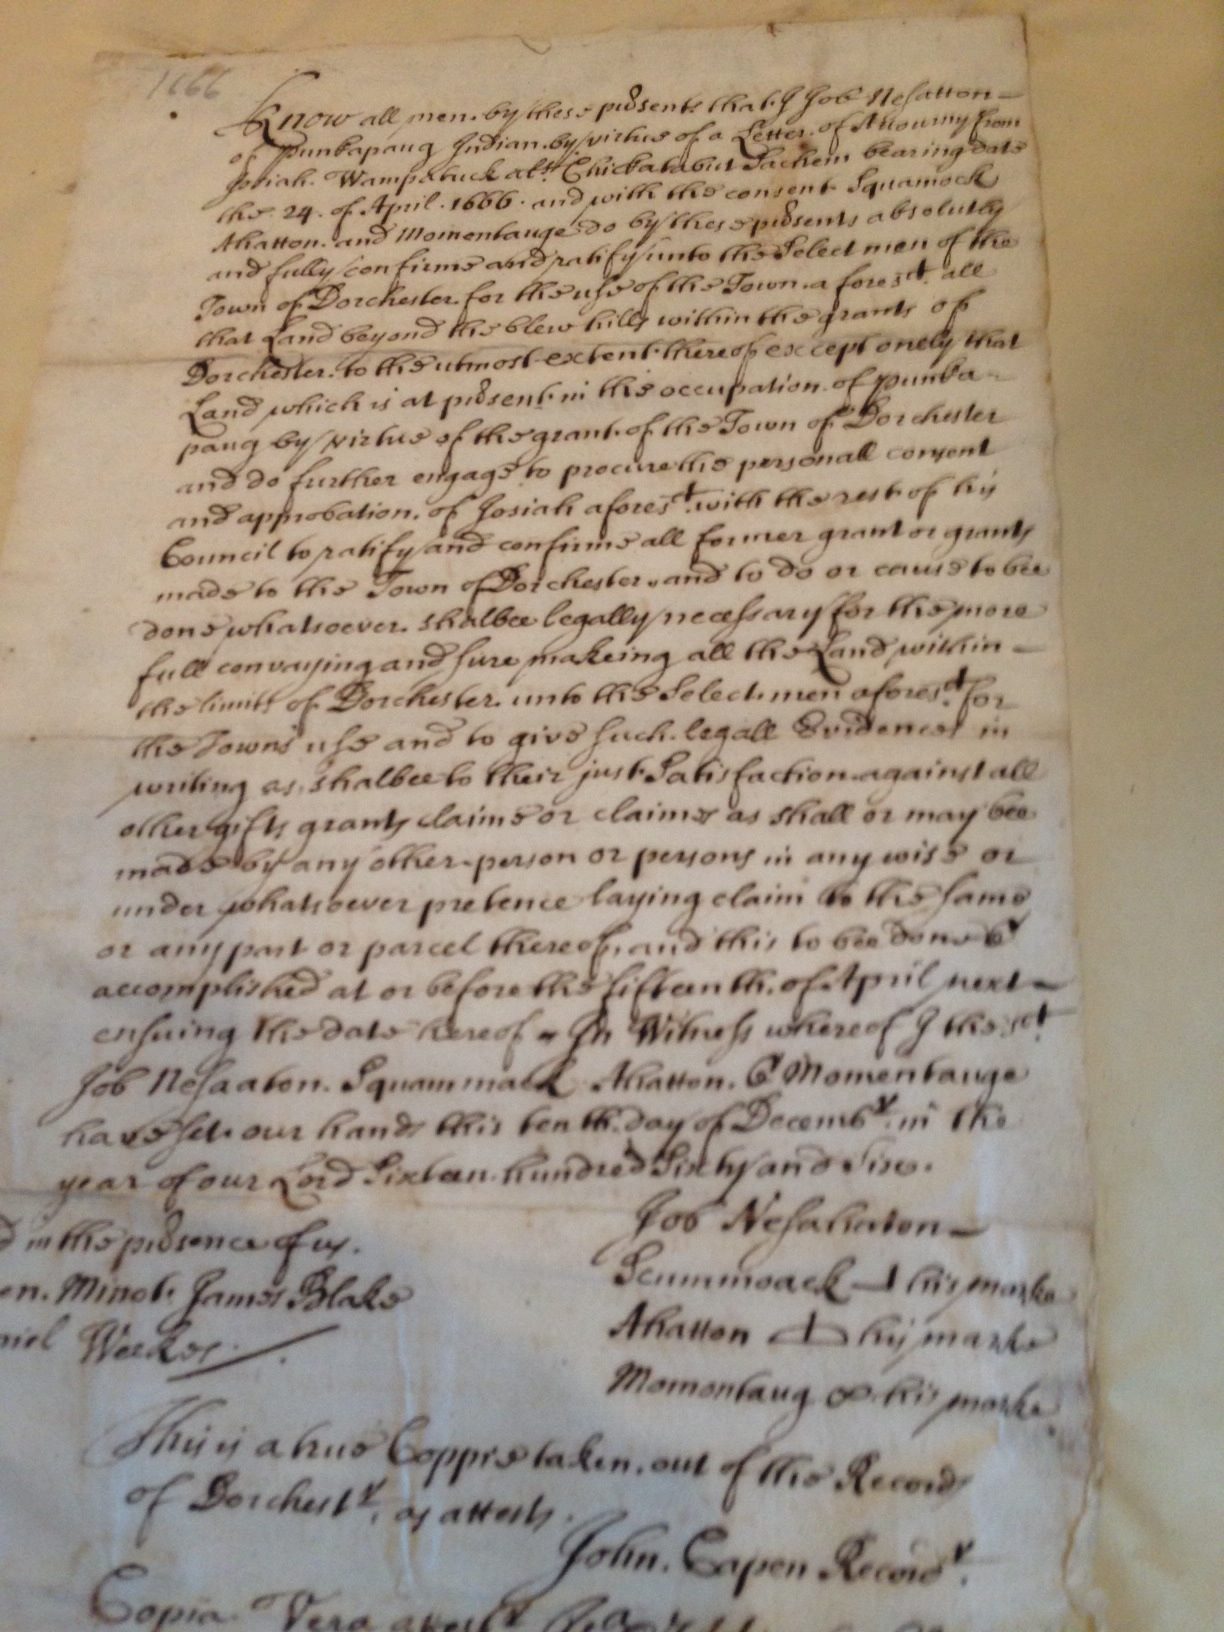 1666
Know all men by these prsents that I Job Nesatton
of Punkapaug Indian by virtue of a Letter of Attourny from
Josiah Wampatuck als Chickatabut Sachem bearing date
the 24 of April 1666 and with the consent Squamock
Ahatton and Momentauge do by these prsents absolutly
and fully confirme and ratify unto the Select men of the
Town of Dorchester for the use of the Town aforesd all
that Land beyond the blew hills within the grants of
Dorchester to the utmost extent thereof except onely that
Land which is at prsent in the occupation of Punka
paug by virtue of the grant of the Town of Dorchester
and do further engage to procure the personall consent
and approbation of Josiah aforesd with the rest of his
Council to ratify and confirme all former grant or grants
made to the Town of Dorchester and to do or cause to bee
done whatsoever shalbee legally necessary for the more
full convaying and sure makeing all the Land within
the limits of Dorchester unto the Select men aforesd for
the Towns use and to give such legall Evidences in
writing as shalbee to their just Satisfaction against all
other gifts grants claime or claimes as shall or may bee
made by any other person or persons in any wise or
under whatsoever pretence laying claim to the same
or any part or parcel thereof, and this to bee done &
accomplished at or before the fifteenth of April next
ensuing the date hereof In Witness whereof I the sd
Job Nesaaton Squammack Ahatton & Momentauge
have set our hands this tenth day of Decembr in the
year of our Lord Sixteen hundred Sixty and Six.
in the prsence of us.
Job Nesahaton
Minot James Blake
Scummoack his marke
Weekes
Ahatton his marke
Momontaug his marke
This is a true Coppie taken out of the Records
of Dorchestr, as attests
John Capen Recordr.
Copia Vera